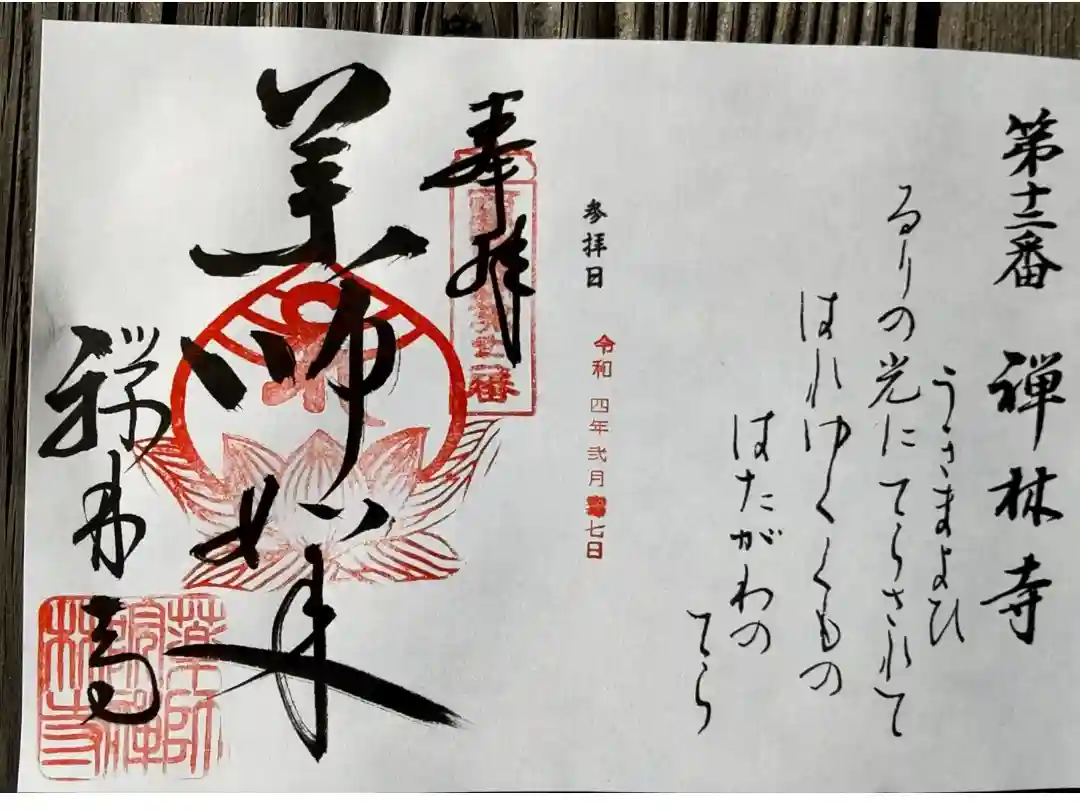 第十二番 禅林寺
うきまよひ
るりの光にてらされて
はれゆくくもの
はたがわの
てら
参拝日 令和四年弐月 七日
奉拝
薬師如来
禅林寺